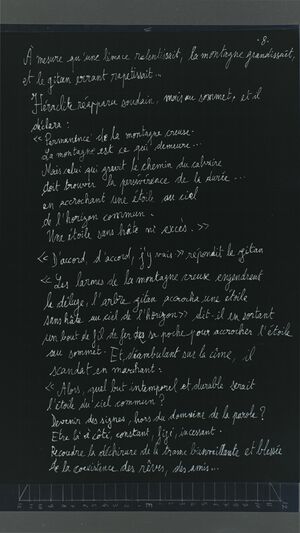 .8.
À mesure qu'une limace ralentissait, la montagne grandissait,
et le gitan errant rapetissait...
Héraclite réapparu soudain, mais au sommet, et il
déclara :
« Permanence de la montagne creuse.
La montagne est ce qui demeure...
Mais celui qui gravit le chemin du
doit trouver la persévérance de la durée...
en accrochant une étoile au ciel
de l'horizon commun.
Une étoile sans hâte ni excès. »
« D'accord, d'accord, j'y vais » répondit le gitan
« Les larmes de la montagne creuse engendrent
le déluge, l'arbre gitan accroche une étoile
sans hâte au ciel de l'horizon » dit-il en sortant
un bout de fil de fer de sa poche pour accrocher l'étoile
au sommet. Et, déambulant sur la cime, il
scandait en marchant :
« Alors, quel but intemporel et durable serait
l'étoile du ciel commun ?
Devenir des signes, hors du domaine de la parole ?
Etre là à côté, constant, figé, incessant.
Recoudre la déchirure de la trame bienveillante et blessée
de la coexistence des rêves, des amis...